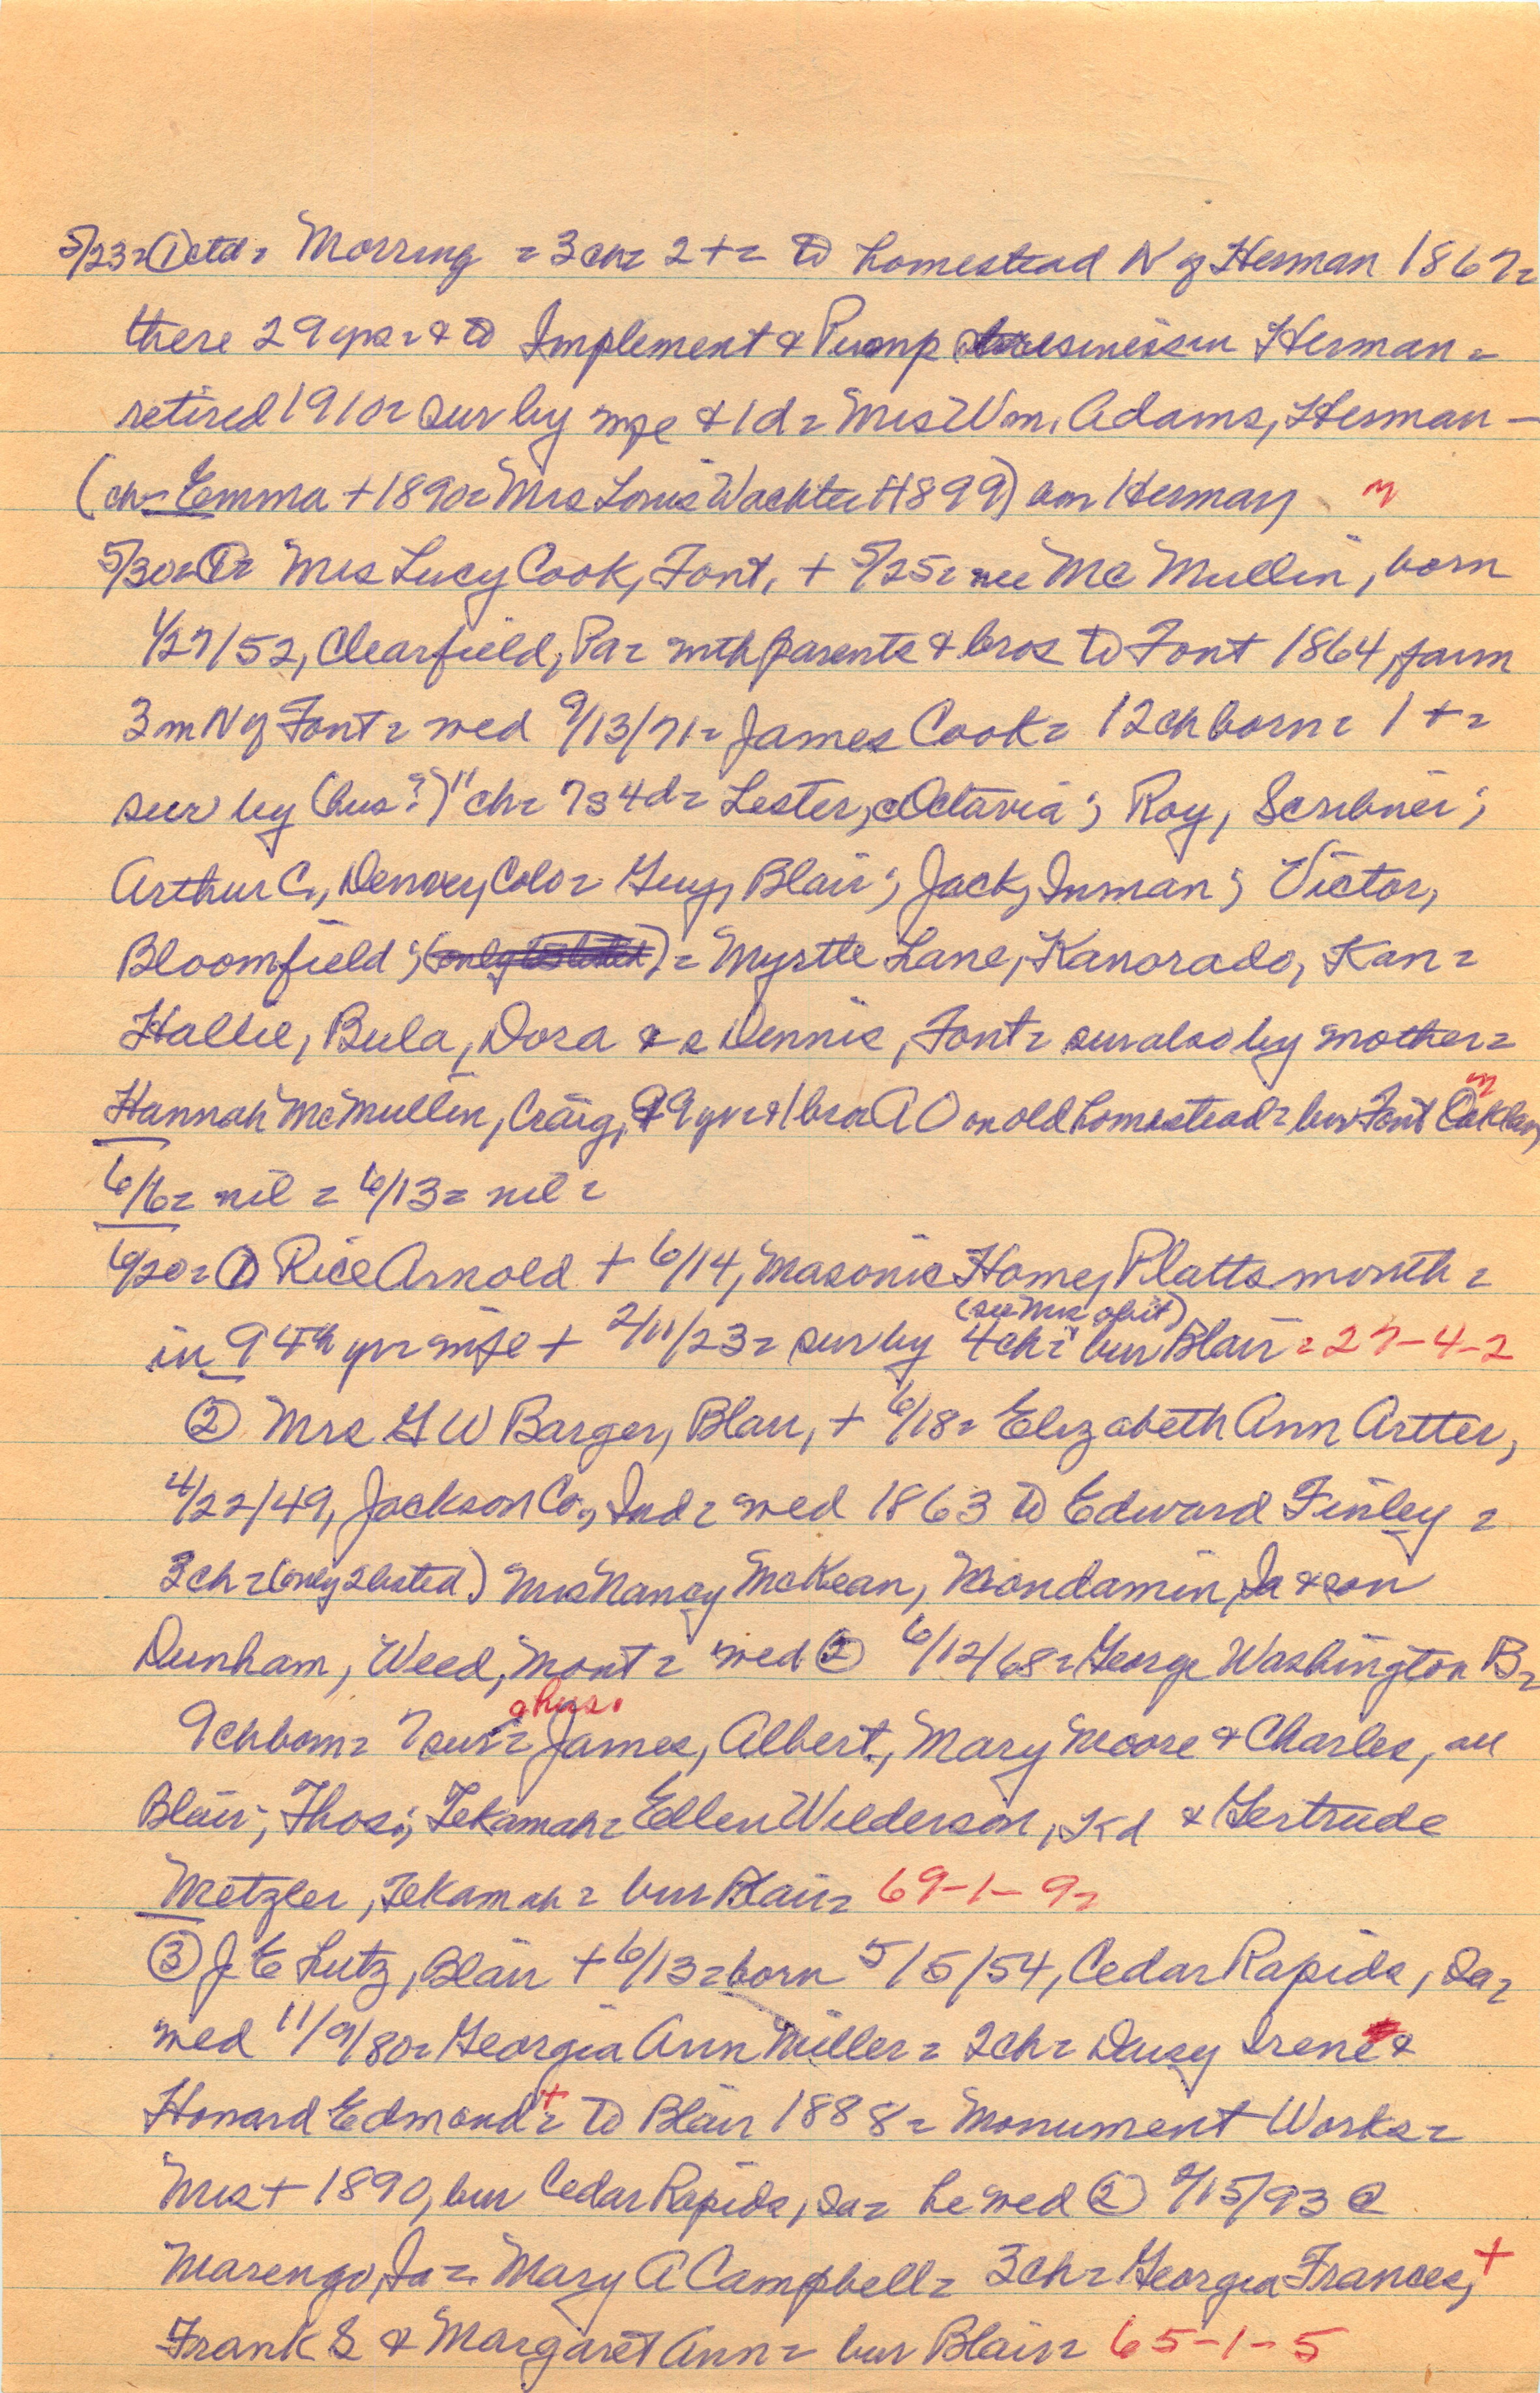 5/23= ① ctd= Morring = 3 ch= 2 += to homestead N of Herman 1867=
there 29 yrs= & to Implement & Pump business in Herman =
retired 1910= sur by wife & 1 d= Mrs Wm. Adams, Herman -
(ch= Emma + 1890= Mrs Louis Wachter + 1899) bur Herman m
5/30= ①= Mrs Lucy Cook, Font, + 5/25= nee McMullin, born
1/27/52, Clearfield, Pa= with parents & bros to Font 1864, farm
3 m N of Font= wed 9/13/71= James Cook= 12 ch born= 1 +=
sur by (hus?) 11 ch= 7s 4d= Lester, Octavia; Roy, Scribner;
Arthur C., Denver, Colo= Guy, Blair; Jack, Inman; Victor,
Bloomfield; = Myrtle Lane, Kanorado, Kan=
Hallie, Bula, Dora & Dennis, Font= sur also by mother=
Hannah McMullin, Craig, 99 yr & 1 bro A O on old homestead= bur Font m
6/6= nil = 6/13= nil =
6/20= ① Rice Arnold + 6/14, Masonic Home, Plattsmouth =
(see Mrs obit)
in 94th yr= wife + 2/11/23= sur by 4 ch= bur Blair = 27-4-2
② Mrs G W Barger, Blair, + 6/18= Elizabeth Ann Artter,
4/22/49, Jackson Co., Ind= wed 1863 to Edward Finley =
3 ch= (only 2 listed) Mrs Nancy McKean, Mondamin, Ia & son
Dunham, Weed, Mont= wed ② 6/12/68= George Washington B=
& hus.
9 ch born= 7 sur= James, Albert, Mary Moore & Charles, all
Blair; Thos; Tekamah= Ellen Wilderson, Kd & Gertrude
Metzler, Tekamah= bur Blair= 69-1-9=
③ J E Lutz, Blair + 6/13= born 5/5/54, Cedar Rapids, Ia=
wed 11/9/80= Georgia Ann Miller= 2 ch= Daisy Irene &
Howard Edmond +=to Blair 1888= Monument Works=
Mrs + 1890, bur Cedar Rapids, Ia= he wed ② 9/15/93 @
Marengo, Ia= Mary A Campbell= 3 ch= Georgia Frances, +
Frank S & Margaret Ann= bur Blair= 65-1-5